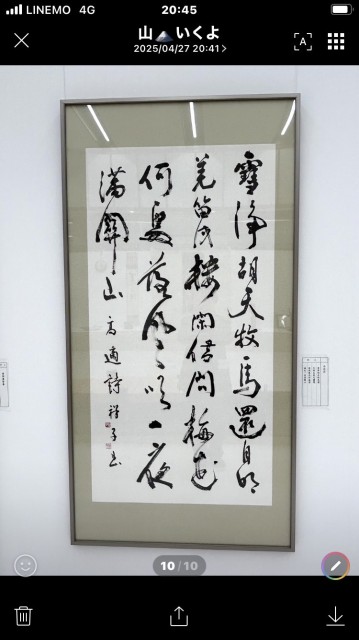 LINEMO 4G
20:45
山🗻いくよ
2025/04/27 20:41
雪淨胡天牧馬還月明
羌笛戍樓閒借問梅花
何處落風吹一夜
滿關山 高適詩 祥子書
10/10